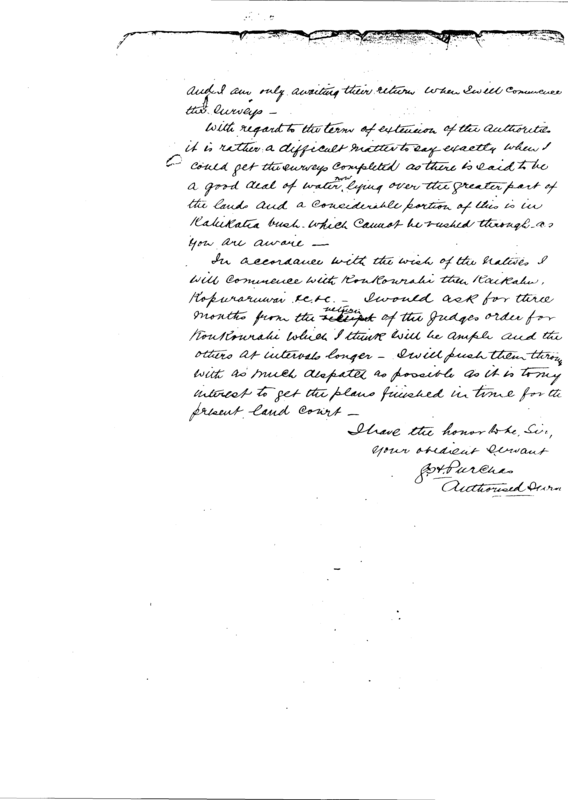 and I am only awaiting their return when I will commence
the surveys –
With regard to the term of extension of the Authorities
it is rather a difficult matter to say exactly when I
could get the surveys completed as there is said to be
a good deal of water now lying over the greater part of
the lands and a considerable portion of this is in
Kahikatia bush which cannot be rushed through as
you are aware –
In accordance with the wish of the Natives I
will commence with Koukourahi then Kaikahu,
Kopuraruwai &c. &c. – I would ask for three
months from the return of the Judges order for
Koukourahi which I think will be ample and the
others at intervals longer – I will push them through
with as much dispatch as possible as it is to my
interest to get the plans finished in time for the
present land court –
I have the honor to be, Sir,
Your obedient Servant
Purchas
Authorised Surv